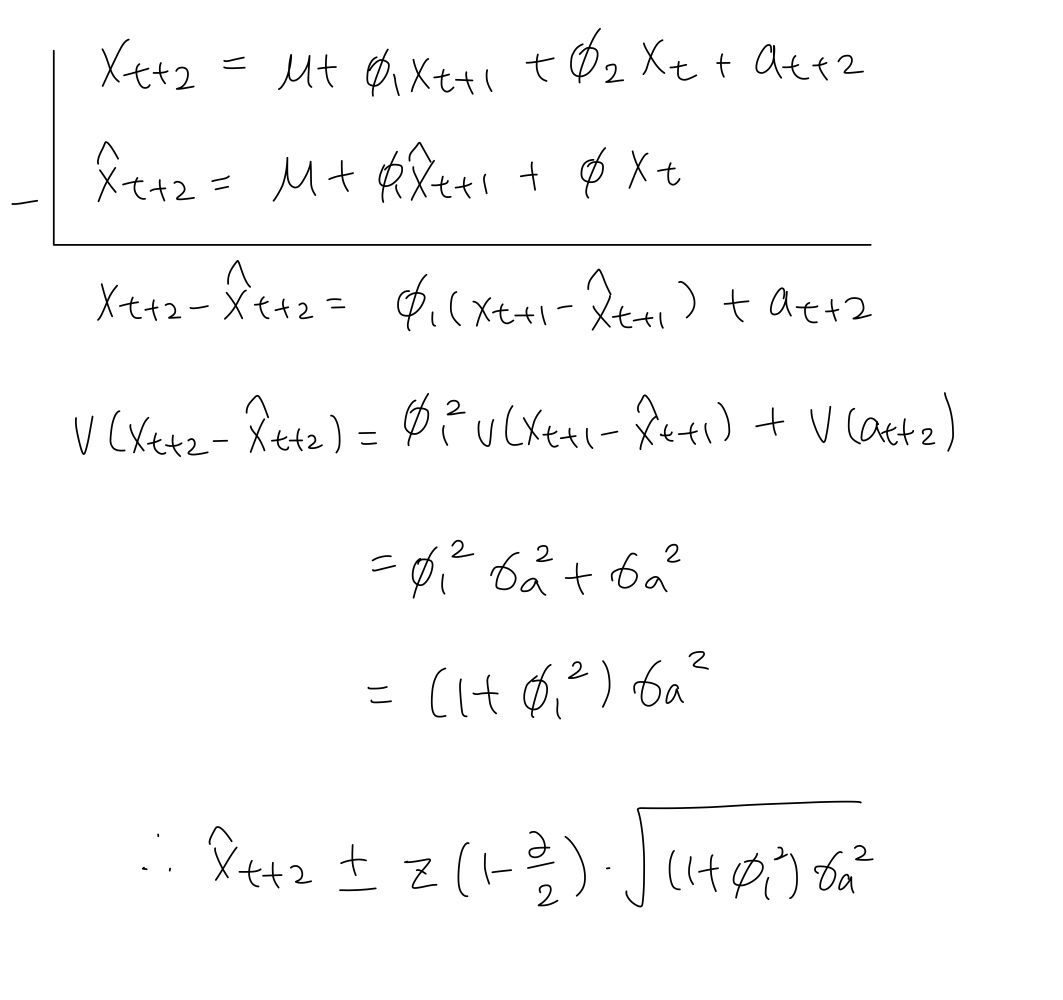 X_{t+2} = μ + ϕ₁X_{t+1} + ϕ₂X_t + a_{t+2}
− X̂_{t+2} = μ + ϕ₁X̂_{t+1} + ϕ X_t
X_{t+2} − X̂_{t+2} = ϕ₁(X_{t+1} − X̂_{t+1}) + a_{t+2}
V(X_{t+2} − X̂_{t+2}) = ϕ₁² V(X_{t+1} − X̂_{t+1}) + V(a_{t+2})
= ϕ₁² σ_a² + σ_a²
= (1 + ϕ₁²) σ_a²
∴ X̂_{t+2} ± z(1 − ∂/2) · √((1 + ϕ₁²) σ_a²)